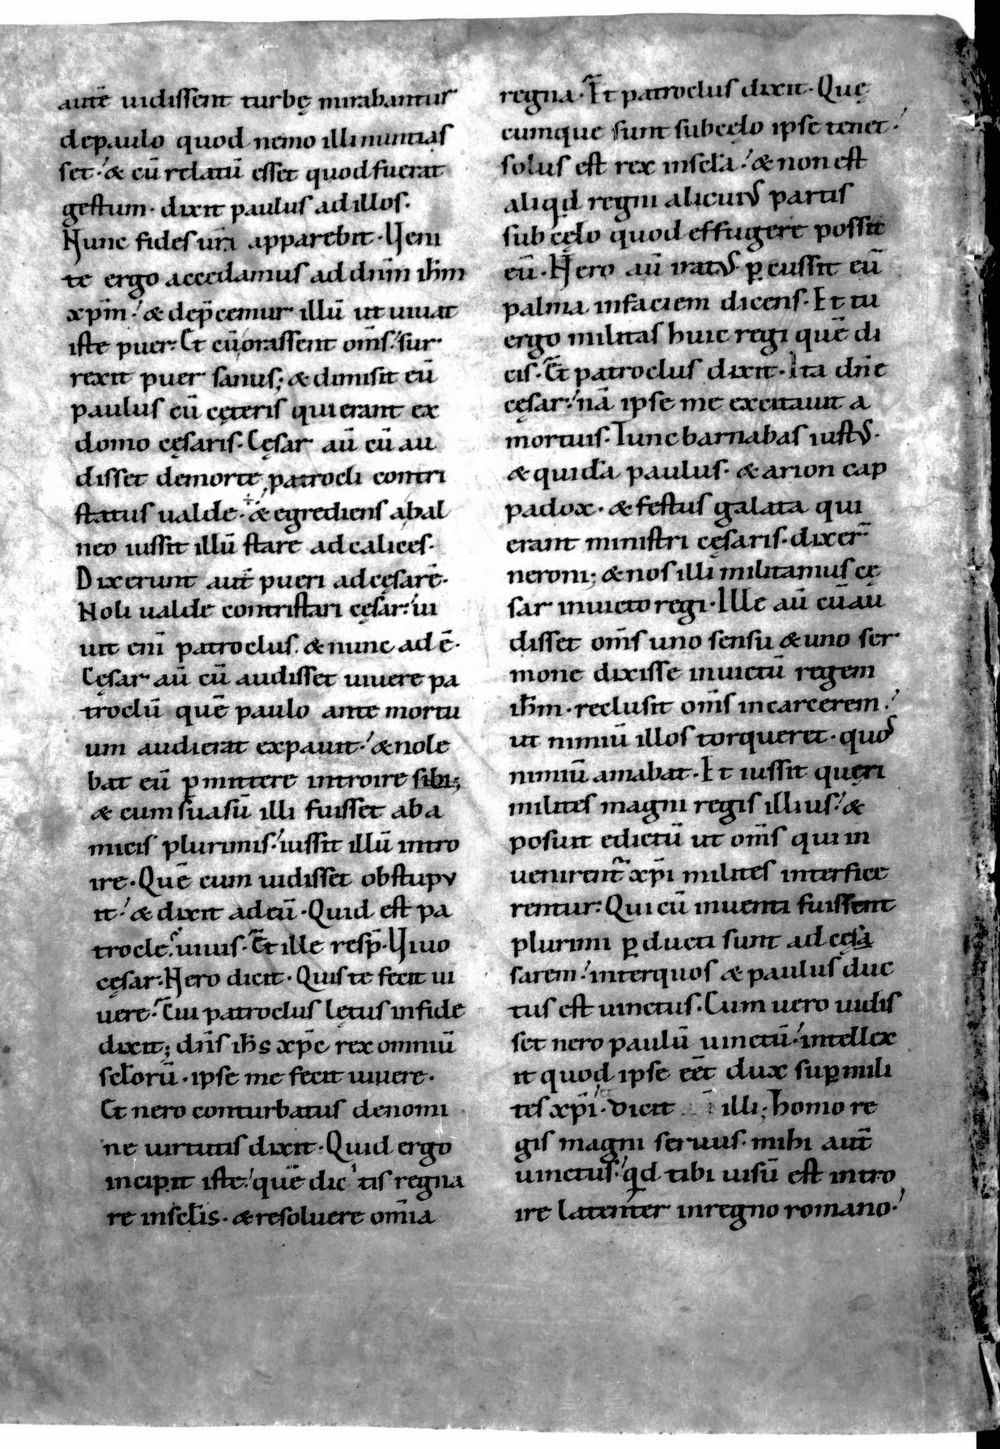 autē uidissent turbę mirabantur
depaulo quod nemo illi nuntias
set· & cū relatū esset quod fuerat
gestum· dixit paulus ad illos·
Nunc fides ur̄a apparebit· Ueni
te ergo accedamus ad dn̄m ih̄m
xp̄m· & dep̄cemur illū ut uiuat
iste puer· Et cū orassent om̄s· sur
rexit puer sanus; & dimisit eū
paulus cū cęteris qui erant ex
domo cęsaris· Cęsar aū cū au
disset demorte patrocli contri
status ualde· & egrediens abal
neo iussit illū stare ad calices·
Dixerunt aut̄ pueri ad cesarē·
Noli ualde contristari cęsar· ui
uit eni patroclus· & nunc ad ē·
Cęsar aū cū audisset uiuere pa
troclū quē paulo ante mortu
um audierat expauit· & nole
bat eū ꝑmittere introire sibi;
& cum suasū illi fuisset aba
micis plurimis· iussit illū intro
ire· Quē cum uidisset obstupu
it· & dixit ad eū· Quid est pa
trocle· uiuis· Et ille resp̄· Uiuo
cęsar· Nero dicit· Quis te fecit ui
uere· Cui patroclus lętus in fide
dixit; dn̄s ih̄s xp̄c rex omniū
sc̄lorū· ipse me fecit uiuere·
Et nero conturbatus denomi
ne uirtutis dixit· Quid ergo
incipit iste· quē dic tis regna
re insc̄lis· & resoluere om̄ia
regna· Et patroclus dixit· Quę
cumque sunt sub cęlo ipse tenet·
solus est rex insc̄la· & non est
aliqd regni alicuiꝰ partis
sub cęlo quod effugere possit
eū· Nero aū iratꝰ ꝑcussit eū
palma infaciem dicens· Et tu
ergo militas huic regi quē di
cis· Et patroclus dixit· Ita dn̄e
cęsar· nā ipse me excitauit a
mortuis· Tunc barnabas iustꝰ·
& quidā paulus· & arion cap
padox· & festus galata qui
erant ministri cęsaris· dixer̄
neroni; & nos illi militamus cę
sar inuicto regi· Ille aū cū au
disset om̄s uno sensu & uno ser
mone dixisse inuictū regem
ih̄m· reclusit om̄s in carcerem·
ut nimiū illos torqueret· quos
nimiū amabat· Et iussit quęri
milites magni regis illius· &
posuit edictū ut om̄s qui in
uenirent̄ xp̄i milites interfice
rentur· Qui cū inuenti fuissent
plurimi ꝑducti sunt ad cęsa
sarem· interquos & paulus duc
tus est uinctus· Cum uero uidis
set nero paulū uinctū· intellex
it quod ipse eēt dux suꝑ mili
tes xp̄i· dicit illi; homo re
gis magni seruus· mihi aut̄
uinctus· qd tibi uisū est intro
ire latenter inregno romano·